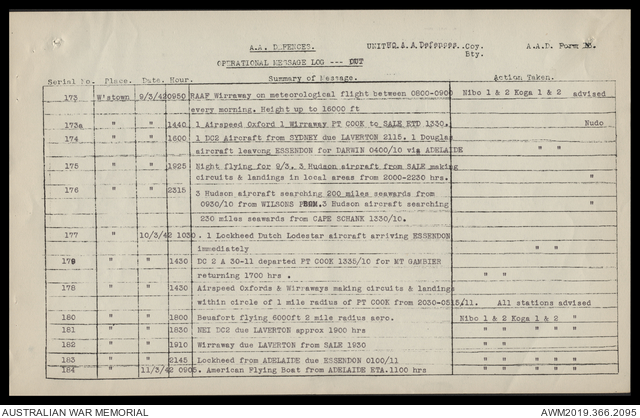 A.A. DEFENCES. UNIT HQ A.A Defences Coy. A.A.D. Form 26.
Bty.
OPERATIONAL MESSAGE LOG --- OUT
Serial No. Place. Date. Hour. Summary of Message. Action Taken.
173 W'stown 9/3/42 0950 RAAF Wirraway on meteorological flight between 0800-0900 Nibo 1 & 2 Koga 1 & 2 advised
every morning. Height up to 16000 ft
173a " " 1440 1 Airspeed Oxford 1 Wirraway PT COOK to SALE RTD 1330. Nudo
174 " " 1600 1 DC2 Aircraft from SYDNEY due LAVERTON 2115. 1 Douglas
aircraft leavong ESSENDON for DARWIN 0400/10 via ADELAIDE " "
175 " " 1925 Night flying for 9/3. 3 Hudson aircraft from SALE making
circuits & landings in local areas from 2000-2230 hrs. "
176 " " 2315 3 Hudson aircraft searching 200 miles seawards from
0930/10 from WILSONS 3 Hudson aircraft searching "
230 miles seawards from CAPE SCHANK 1330/10.
177 " 10/3/42 1030 . 1 Lockheed Dutch Lodestar aircraft arriving ESSENDON
immediately " "
179 " " 1430 DC 2 A 30-11 departed PT COOK 1335/10 for MT GAMBIER
returning 1700 hrs . " "
178 " " 1430 Airspeed Oxfords & Wirraways making circuits & landings
within circle of 1 mile radius of PT COOK from 2030-0515/11. All stations advised
180 " " 1800 Beuafort flying 6000ft 2 mile radius aero. Nibo 1 & 2 Koga 1 & 2 "
181 " " 1830 NEI DC2 due LAVERTON approx 1900 hrs " " "
182 " " 1910 Wirraway due LAVERTON from SALE 1930 " " "
183 " " 2145 Lockheed from ADELAIDE due ESSENDON 0100/11 " " "
184 " 11/3/42 0905. American Flying Boat from ADELAIDE ETA.1100 hrs " " "
AUSTRALIAN WAR MEMORIAL AWM2019.366.2095